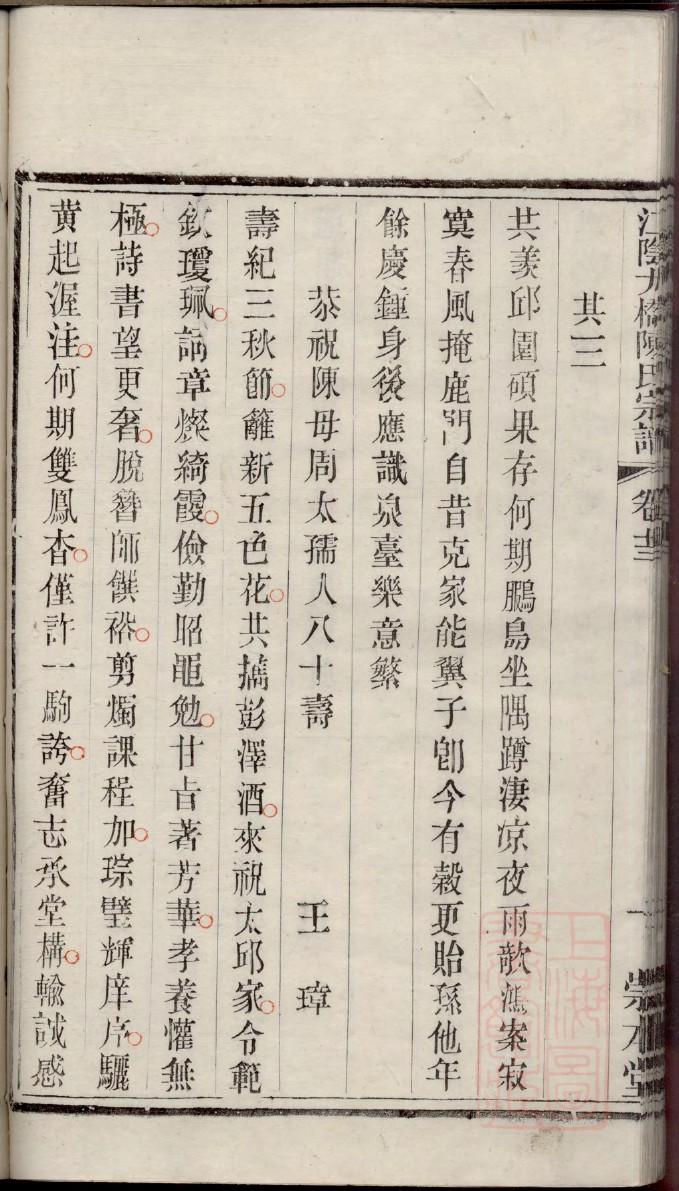 江陰九橋陳氏宗譜 卷廿三 一 崇本堂
其三
共羨邱園碩果存何期鵩鳥坐隅蹲淒凉夜雨歊漁案寂
寞春風掩鹿門自昔克家能翼子卽今有穀更貽孫他年
餘慶鍾身後應識泉臺樂意繁
恭祝陳母周太孺人八十壽 王瑋
壽紀三秋節籬新五色花共擕彭澤酒來祝太邱家令範
欽瓊珮詞章燦綺霞儉勤昭黽勉甘旨著芳華孝養懽無
極詩書望更奢脫簪師饌裕剪燭課程加琮璧輝庠序驪
黄起渥注何期雙鳳杳僅許一駒誇奮志承堂構輸誠感